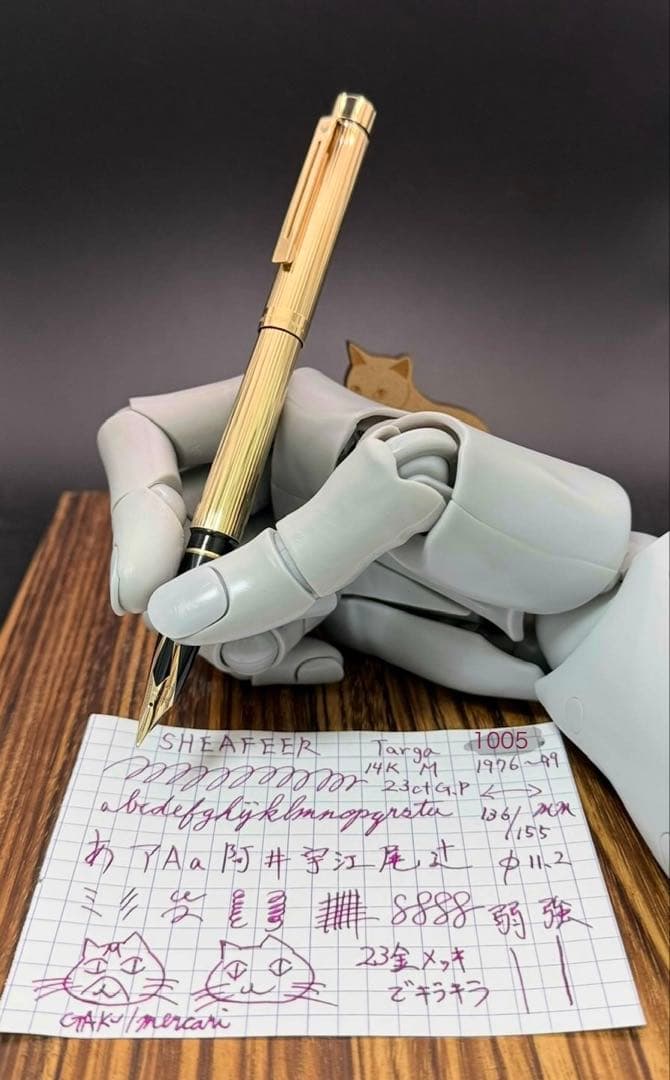 SHEAFEER Targa 1005
14K M 1976~99
23ct G.P ←→
abcdefghijklmnopqrstu 136/ mm
/155
あ アAa 阿 井 宇 江 尾 辻 φ11.2
ミ 8888 弱 強
23金メッキ
でキラキラ
GAKu/mercari